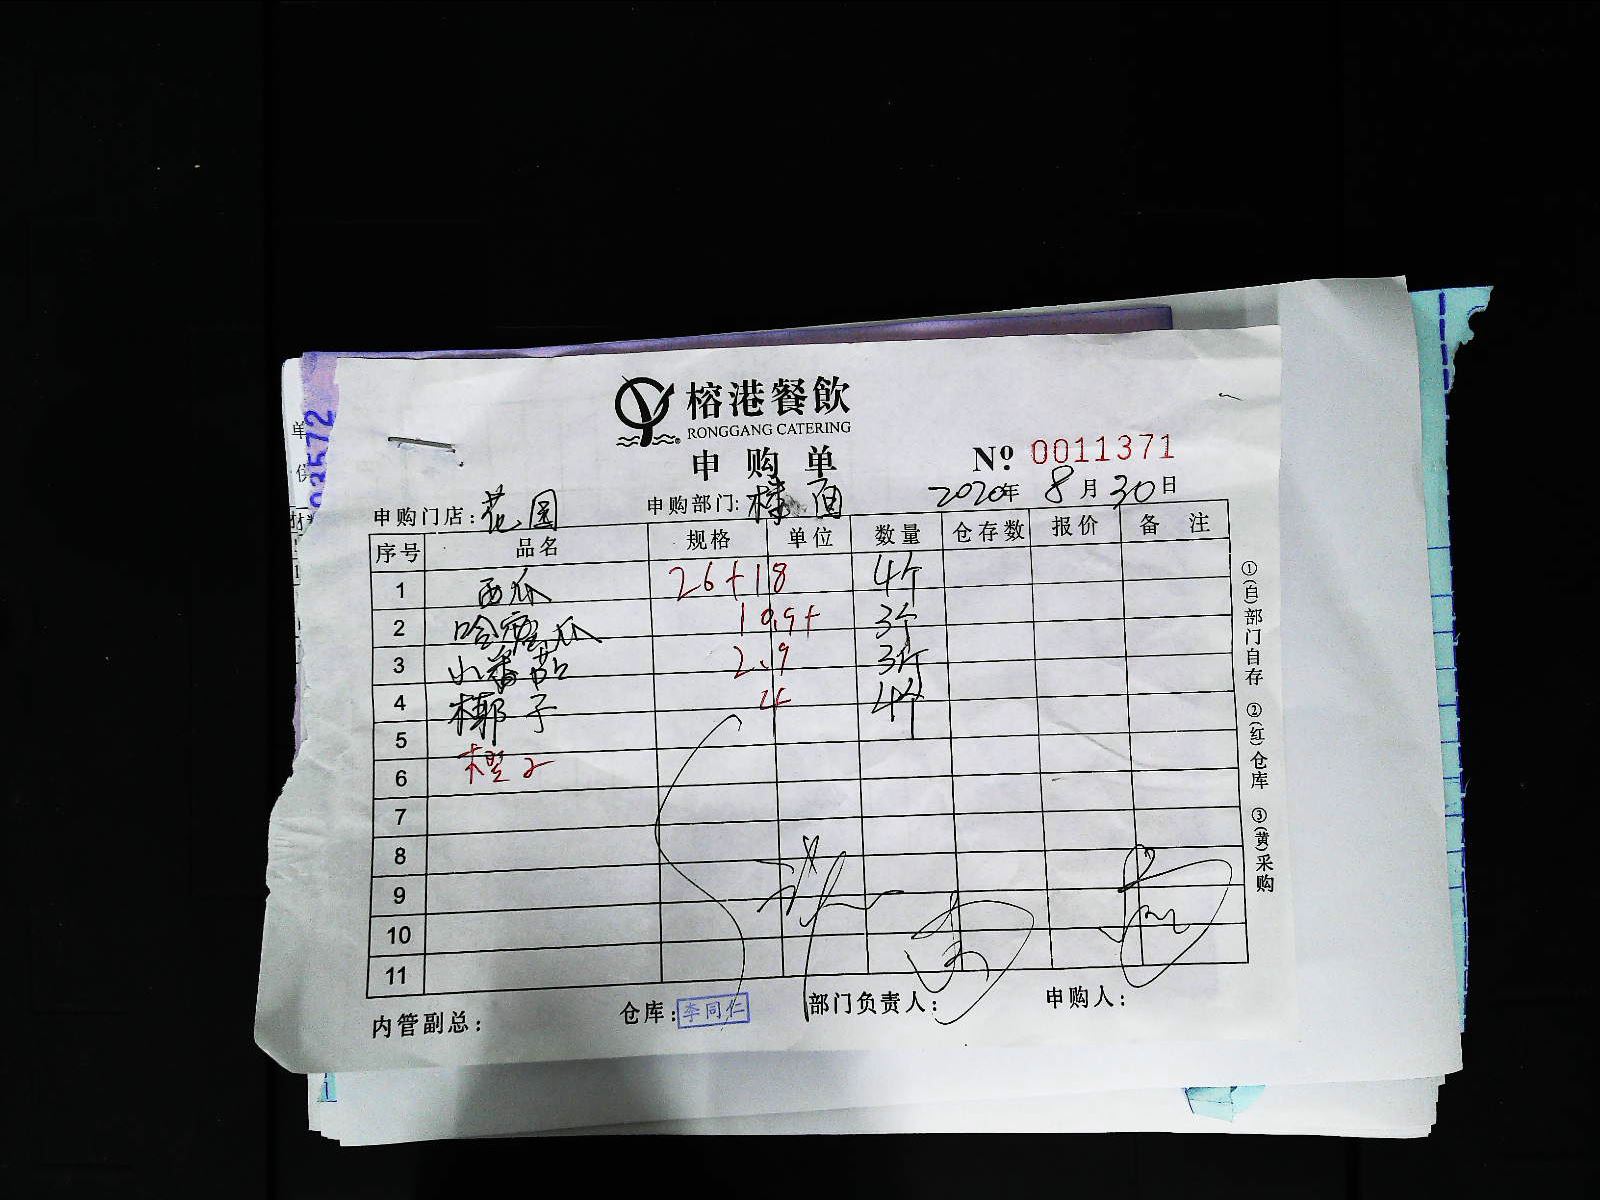 榕港餐飲
RONGGANG CATERING
申购单
№ 0011371
申购门店：花园 申购部门：楼面 2020年8月30日
序号 品名 规格 单位 数量 仓存数 报价 备注
1 西瓜 26+18 4个
2 哈密瓜 19.9+ 3个
3 小番茄 2.9 3斤
4 椰子 4 4个
5
6 橙子
7
8
9
10
11
内管副总： 仓库：李同仁 部门负责人： 申购人：
①(白)部门自存 ②(红)仓库 ③(黄)采购
03572
单